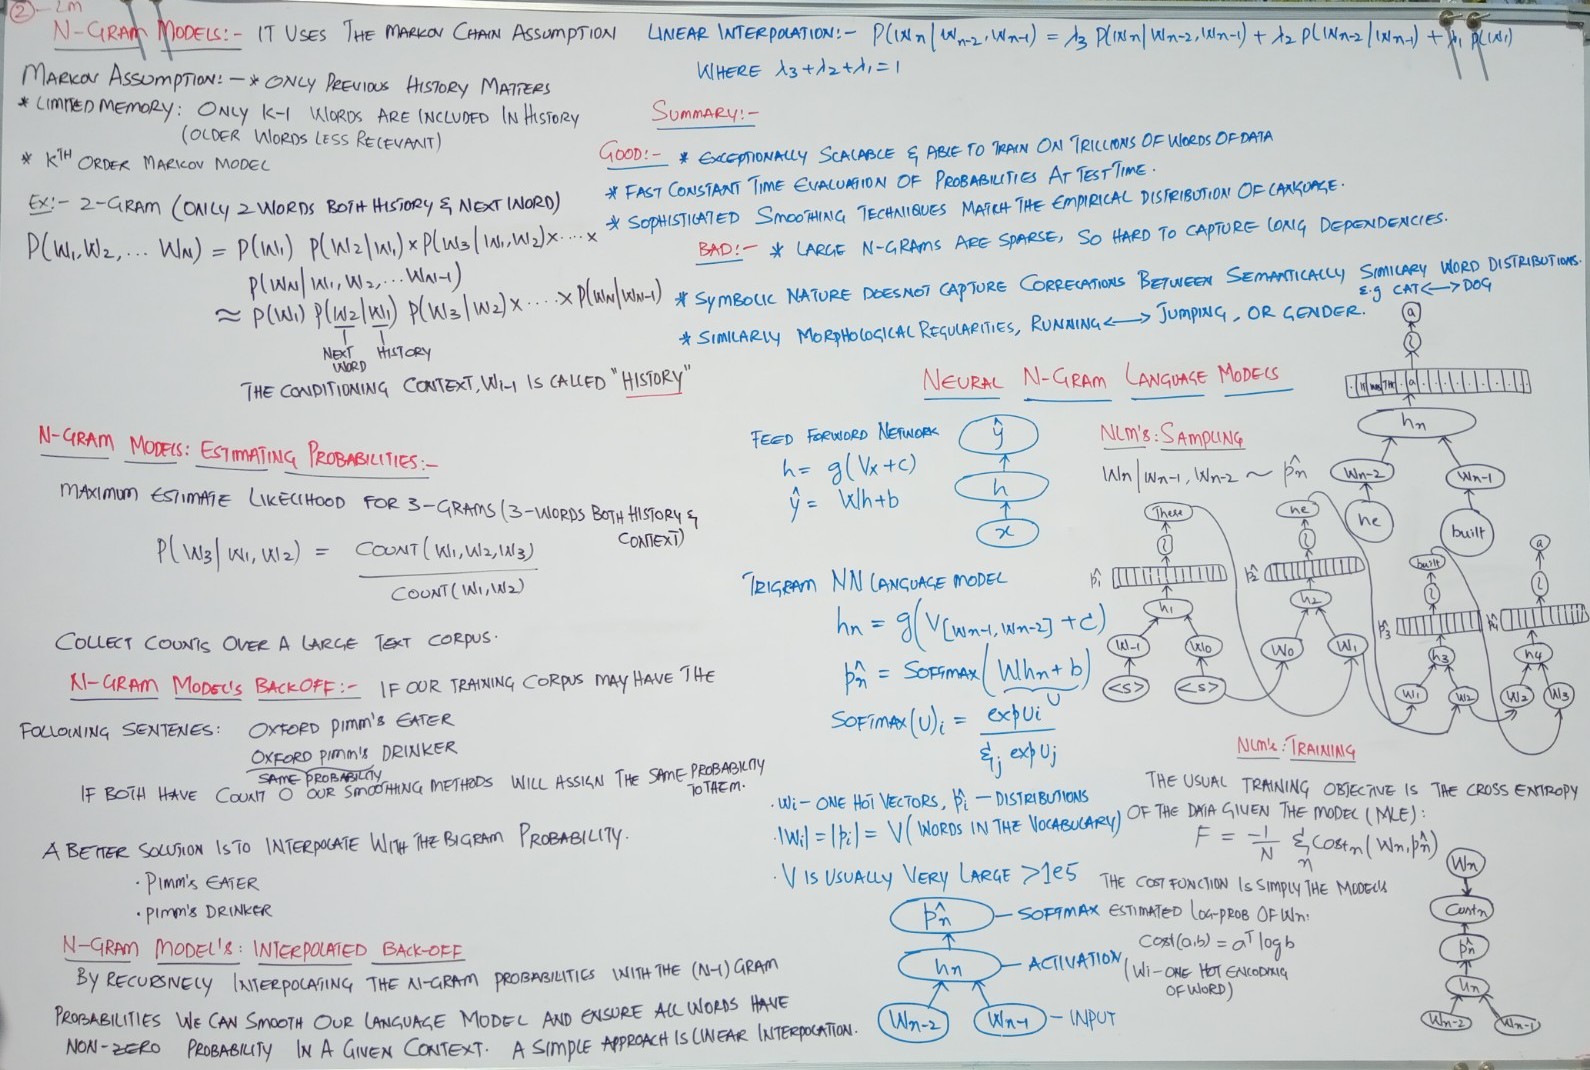 ② - LM
N-GRAM MODELS:- IT USES THE MARKOV CHAIN ASSUMPTION
MARKOV ASSUMPTION:- * ONLY PREVIOUS HISTORY MATTERS
* LIMITED MEMORY: ONLY K-1 WORDS ARE INCLUDED IN HISTORY
(OLDER WORDS LESS RELEVANT)
* KTH ORDER MARKOV MODEL
EX:- 2-GRAM (ONLY 2 WORDS BOTH HISTORY & NEXT WORD)
P(W1,W2,... WN) = P(W1) P(W2|W1) × P(W3|W1,W2) × .... ×
P(WN|W1,W2,...WN-1)
≈ P(W1) P(W2|W1) P(W3|W2) × .... × P(WN|WN-1)
NEXT WORD HISTORY
THE CONDITIONING CONTEXT, Wi-1 IS CALLED "HISTORY"
N-GRAM MODELS: ESTIMATING PROBABILITIES:-
MAXIMUM ESTIMATE LIKELIHOOD FOR 3-GRAMS (3-WORDS BOTH HISTORY &
CONTEXT)
P(W3|W1,W2) = COUNT(W1,W2,W3)
COUNT(W1,W2)
COLLECT COUNTS OVER A LARGE TEXT CORPUS.
N-GRAM MODEL'S BACKOFF:- IF OUR TRAINING CORPUS MAY HAVE THE
FOLLOWING SENTENES: OXFORD PIMM'S EATER
OXFORD PIMM'S DRINKER
SAME PROBABILITY
IF BOTH HAVE COUNT 0 OUR SMOOTHING METHODS WILL ASSIGN THE SAME PROBABILITY
TO THEM.
A BETTER SOLUTION IS TO INTERPOLATE WITH THE BIGRAM PROBABILITY.
· PIMM'S EATER
· PIMM'S DRINKER
N-GRAM MODEL'S: INTERPOLATED BACK-OFF
BY RECURSIVELY INTERPOLATING THE N-GRAM PROBABILITIES WITH THE (N-1) GRAM
PROBABILITIES WE CAN SMOOTH OUR LANGUAGE MODEL AND ENSURE ALL WORDS HAVE
NON-ZERO PROBABILITY IN A GIVEN CONTEXT. A SIMPLE APPROACH IS LINEAR INTERPOLATION.
LINEAR INTERPOLATION:- P(Wn|Wn-2,Wn-1) = λ3 P(Wn|Wn-2,Wn-1) + λ2 P(Wn-2|Wn-1) + λ1 P(W1)
WHERE λ3+λ2+λ1=1
SUMMARY:-
GOOD:- * EXCEPTIONALLY SCALABLE & ABLE TO TRAIN ON TRILLIONS OF WORDS OF DATA
* FAST CONSTANT TIME EVALUATION OF PROBABILITIES AT TEST TIME.
* SOPHISTICATED SMOOTHING TECHNIQUES MATCH THE EMPIRICAL DISTRIBUTION OF LANGUAGE.
BAD:- * LARGE N-GRAMS ARE SPARSE, SO HARD TO CAPTURE LONG DEPENDENCIES.
* SYMBOLIC NATURE DOES NOT CAPTURE CORRELATIONS BETWEEN SEMANTICALLY SIMILARY WORD DISTRIBUTIONS.
E.g CAT <-> DOG
* SIMILARLY MORPHOLOGICAL REGULARITIES, RUNNING <-> JUMPING, OR GENDER.
NEURAL N-GRAM LANGUAGE MODELS
FEED FORWORD NETWORK
h = g(Vx+c)
ŷ = Wh+b
ŷ
h
x
TRIGRAM NN LANGUAGE MODEL
hn = g(V[Wn-1,Wn-2] + c)
p̂n = SOFTMAX(Whn + b)
U
SOFTMAX(U)i = expUi
Σj expUj
· Wi - ONE HOT VECTORS, p̂i - DISTRIBUTIONS
· |Wi| = |p̂i| = V (WORDS IN THE VOCABULARY)
· V IS USUALLY VERY LARGE >1e5
p̂n - SOFTMAX
hn - ACTIVATION
Wn-2 Wn-1 - INPUT
NLM's: SAMPLING
Wn|Wn-1,Wn-2 ~ p̂n
a
hn
Wn-2 Wn-1
he built
There he built a
p̂1 p̂2 p̂3 p̂4
h1 h2 h3 h4
W-1 W0 W0 W1 W1 W2 W2 W3
<s> <s>
NLM's: TRAINING
THE USUAL TRAINING OBJECTIVE IS THE CROSS ENTROPY
OF THE DATA GIVEN THE MODEL (MLE):
F = -1/N Σn Costn(Wn,p̂n)
THE COST FUNCTION IS SIMPLY THE MODELS
ESTIMATED LOG-PROB OF Wn:
Cost(a,b) = aT log b
(Wi - ONE HOT ENCODING
OF WORD)
Wn
Costn
p̂n
hn
Wn-2 Wn-1